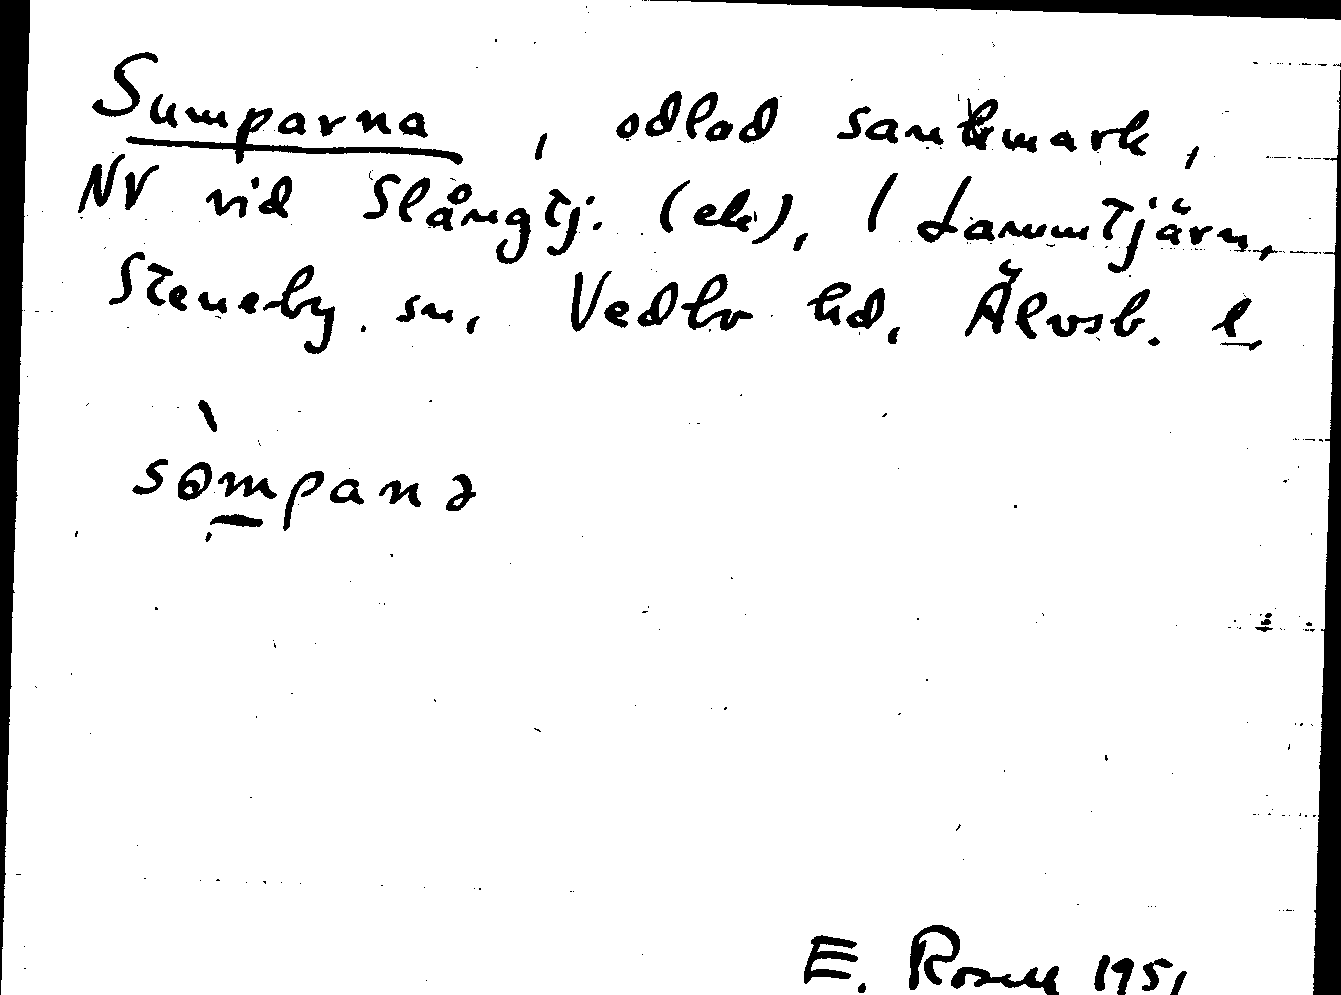 Sumparna, odlad sankmark,
NV vid Slångtj. (ek), / Larumtjärn,
Steneby sn, Vedbo hd, Älvsb. l.
sòmpanə
E. Rosell 1951